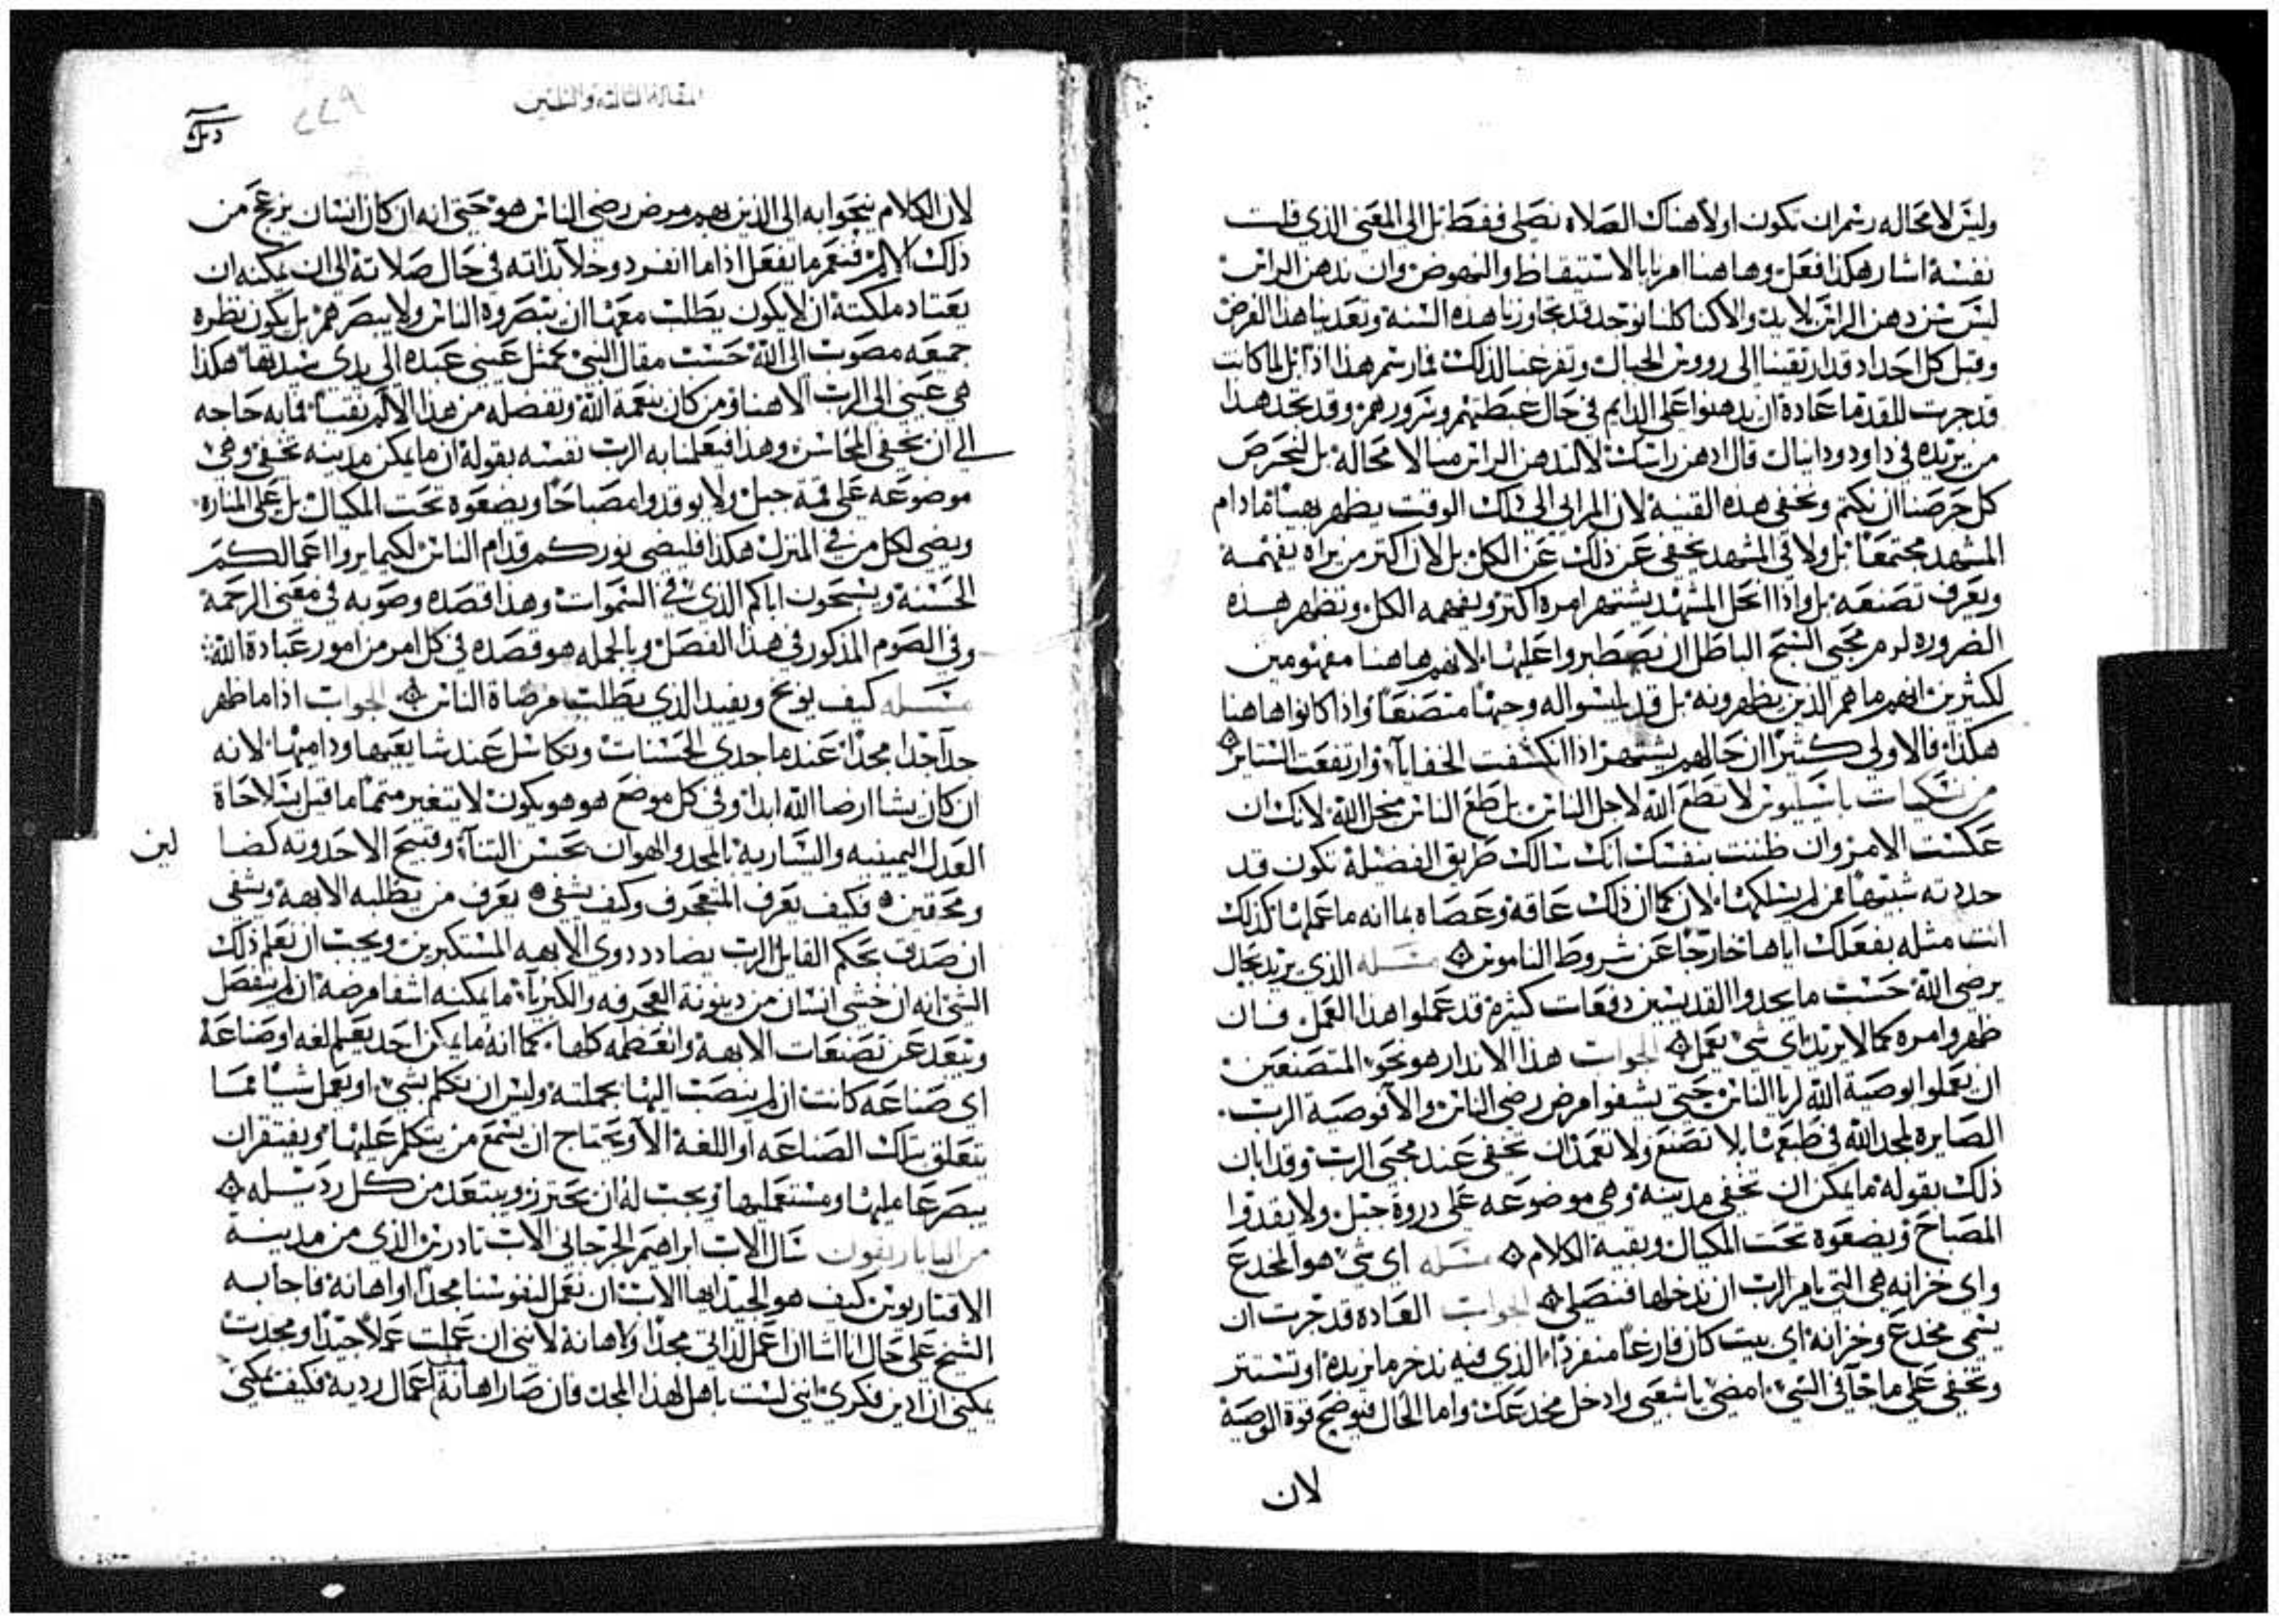 وليس لا محاله رسم ان تكون اولا هناك الصلاه نصلي فقط بل الى المعنى الذي قلت
نفسه اشار هكذا فعل وهاهنا امر بابالاستيقاظ والنهوض وان ندهن الراس
ليس سندهن الراس لابد والا كنا كلنا نوجد قد تجاوزنا هذه السنه وتعدينا هذا الفرض
وقبل كل احد قد ارتقينا الى رووس الجبال وتفرغنا لذلك فمارسم هذا اذًا بل لما كانت
قد جرت للقدما عادة ان يدهنوا على الدايم في حال غبطتهم وسرورهم وقد يجد هذا
من يريده في داود ودانيال قال ادهن راسك لا لندهن الراس منا لا محالة بل لنحرص
كل حرصنا ان نكتم ونخفي هذه القنيه لان المرايي الى ذلك الوقت يظهر بهيًا مادام
المشهد مجتمعًا بل ولا في المشهد يخفي عن ذلك عن الكل بل لان اكثر من يراه يفهمه
ويعرف تصنعه بل واذا انحل المشهد يشتهر امره اكثر ويفهمه الكل وتظهر هذه
الضروره لزم محبي السبح الباطل ان يصطبروا عليها لانهم هاهنا مفهومين
لكثيرين انهم ما هم الذين يظهرونه بل قد لبسوا له وجهًا متصنعًا واذا كانوا هاهنا
هكذا فالاولى كثيرًا ان حالهم يشتهر اذا انكشفت الخفايا وارتفعت الستاير
من نسكيات باسيليوس لا تطع الله لاجل الناس بل طع الناس من اجل الله لانك ان
عكست الامر وان ظننت بنفسك انك سالك طريق الفضيلة تكون قد
حددته شبيهًا بمن لم يسلكها لان كما ان ذاك عاقة وعصاه بما انه ما عملها كذلك
انت مثله بفعلك اياها خارجًا عن شروط الناموس مسله الذي يريد بحال
يرضي الله حسب ما يجدوا القديسين دفعات كثيرة قد عملوا هذا العمل فان
ظهروا مره كما لا يريد اي شي يعمل الجواب هذا الانذار هو نحو المتصنعين
ان يعملوا بوصية الله لريا الناس حتى يشفوا مرض رضى الناس والا فوصية الرب
الصايره لمجد الله في طبعها بلا تصنع ولا تعمد ان تخفى عند محبي الرب وقد ابان
ذلك بقوله ما يمكن ان تخفي مدينة وهي موضوعه على دروة جبل ولا يقدوا
المصباح ويضعوه تحت المكيال وبقية الكلام مسله اي شي هو المخدع
واي خزانه هي التي يامر الرب ان ندخلها فنصلي الجواب العاده قد جرت ان
يسمى مخدع وخزانه اي بيت كان فارغًا منفردًا الذي فيه ندخر ما نريده او نستتر
ونختفي على ما جا في النبي امضي يا شعبي وادخل مخدعك واما الحال فيوضح قوة الوصية
لان
المقالة الثالثة والثلثين
٢٢٩
لان الكلام نحو ابه الى الذين بهم مرض رضى الناس هو حتى انه ان كان انسان ينزعج من
ذلك الالم فنعم ما يفعل اذا ما انفرد وخلا بذاته في حال صلاتة الى ان يمكنه ان
يعتاد ملكته ان لا يكون يطلب معها ان يبصروه الناس ولا يبصرهم بل يكون نظره
جميعه مصوب الى الله حسب مقال النبي كمثل عيني عبده الى يدي سيدتها هكذا
هي عيني الى الرب الاهنا ومن كان بنعمة الله وتفضله من هذا الالم نقيًا فما به حاجه
الى ان يخفي المحاسن وهذا فيعلمنا به الرب نفسه بقولة ان ما يمكن مدينه تخفى وهي
موضوعه على قمة جبل ولا يوقدوا مصباحًا ويضعوه تحت المكيال بل على المناره
ويضى لكل من في المنزل هكذا فليضى نوركم قدام الناس لكيما يروا اعمالكم
الحسنه ويسبحون اباكم الذي في السموات وهذا قصده وصوبه في معنى الرحمة
وفي الصوم المذكور في هذا الفصل وبالجمله هو قصده في كل امر من امور عبادة الله
مسله كيف يوبخ ويفيد الذي يطلب مرضاة الناس الجواب اذا ما ظهر
جدًا مجدًا عند ما حدي الحسنات وتكاسل عند شا يعيبها وداميها لانه
ان كان يشا ارضا الله ابدًا وفي كل موضع هو هو يكون لا يتغير متممًا ما قيل بسلاحاة
العدل اليمينيه واليساريه بالمجد والهوان بحسن الثنآ وقبيح الاحدوثه كضا لين
ومحقين فكيف يعرف المتعجرف وكيف يشفى يعرف من يطلبه الابهة ويشفى
ان صدق بحكم القايل الرب يضادد ذوي الابهه المستكبرين ويجب ان يعلم ذلك
الشي انه ان خشي انسان من دينونة العجرفه والكبريآ ما يمكنه اشفا مرضه ان لم ينفصل
ويبعد عن تصنعات الابهة والعظمه كلها كما انه ما يمكن احد يعلم لغه او صناعة
اي صناعه كانت ان لم ينصب اليها بجملته وليس ان يتكلم بشي او يعمل شيًا مما
يتعلق بتلك الصناعه او اللغة الا ويحتاج ان يسمع من يتكلم عليها ويفتقر ان
يبصر عامليها ومستعمليها ويجب له ان يحترز ويبتعد من كل رذيله
من البابا ريفون سال الاب ابراهيم الجرجاني الاب تادرس الذي من مدينة
الافتاريوس كيف هو الجيد ايها الاب ان نعمل لنفوسنا مجدًا او اهانة فاجابه
الشيخ على حال انا اشا ان اعمل لذاتي مجدًا ولا هانة لانني ان عملت عملاً جيدًا ومجدت
يمكني ان ادين فكري انني لست باهل لهذا المجد فان صار اهانة من اعمال ردية فكيف يمكني